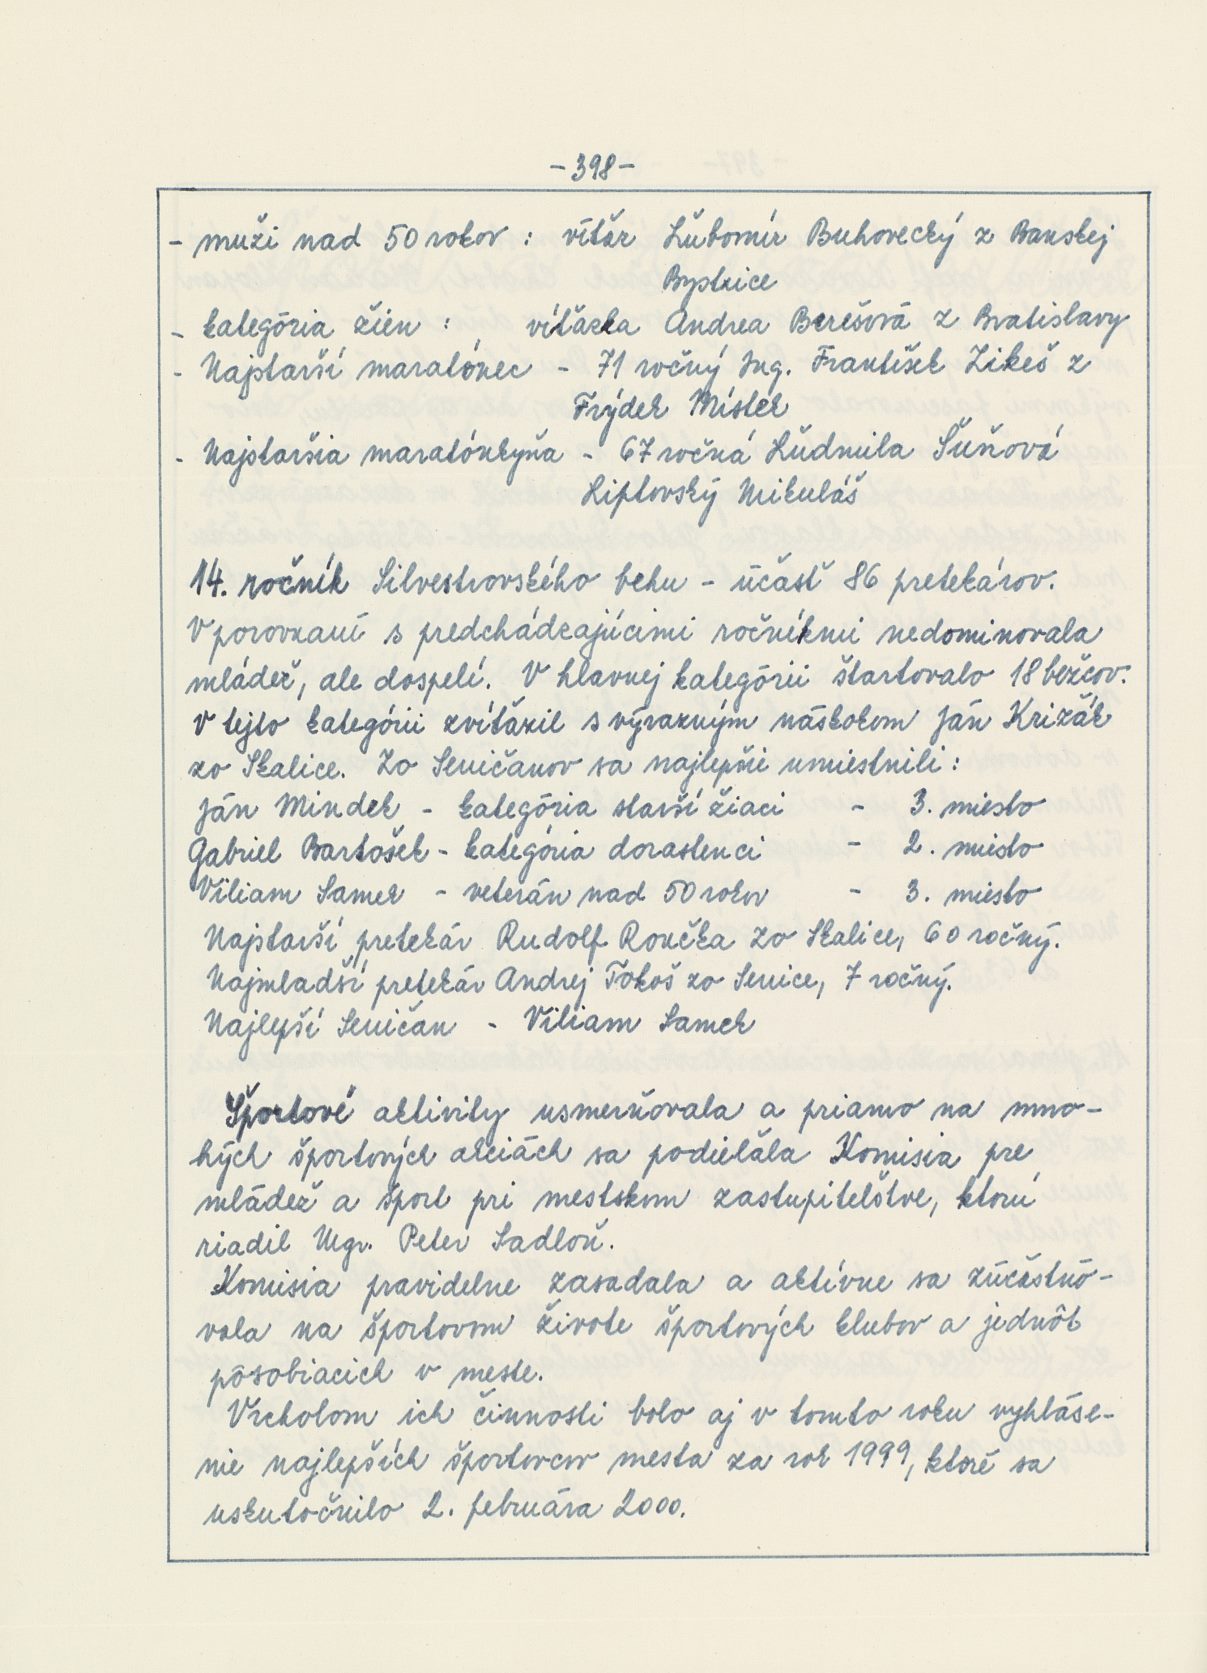 -398-
- muži nad 50 rokov : víťaz Ľubomír Buhovecký z Banskej
Bystrice
- kategória žien : víťazka Andrea Berešová z Bratislavy
- Najstarší maratónec - 71 ročný Ing. František Zikeš z
Frýdek Místek
- Najstaršia maratónkyňa - 67 ročná Ľudmila Šuňová
Liptovský Mikuláš
14. ročník Silvestrovského behu - účasť 86 pretekárov.
V porovnaní s predchádzajúcimi ročníkmi nedominovala
mládež, ale dospelí. V hlavnej kategórii štartovalo 18 bežcov.
V tejto kategórii zvíťazil s výrazným náskokom Ján Krizák
zo Skalice. Zo Seničanov sa najlepšie umiestnili :
Ján Mindek - kategória starší žiaci - 3. miesto
Gabriel Bartošek - kategória dorastenci - 2. miesto
Viliam Samek - veterán nad 50 rokov - 3. miesto
Najstarší pretekár Rudolf Roučka zo Skalice, 60 ročný.
Najmladší pretekár Andrej Tokoš zo Senice, 7 ročný.
Najlepší Seničan - Viliam Samek
Športové aktivity usmerňovala a priamo na mno-
hých športových akciách sa podieľala Komisia pre
mládež a šport pri mestskom zastupiteľstve, ktorú
riadil Mgr. Peter Sadloň.
Komisia pravidelne zasadala a aktívne sa zúčastňo-
vala na športovom živote športových klubov a jednôt
pôsobiacich v meste.
Vrcholom ich činnosti bolo aj v tomto roku vyhláse-
nie najlepších športovcov mesta za rok 1999, ktoré sa
uskutočnilo 2. februára 2000.